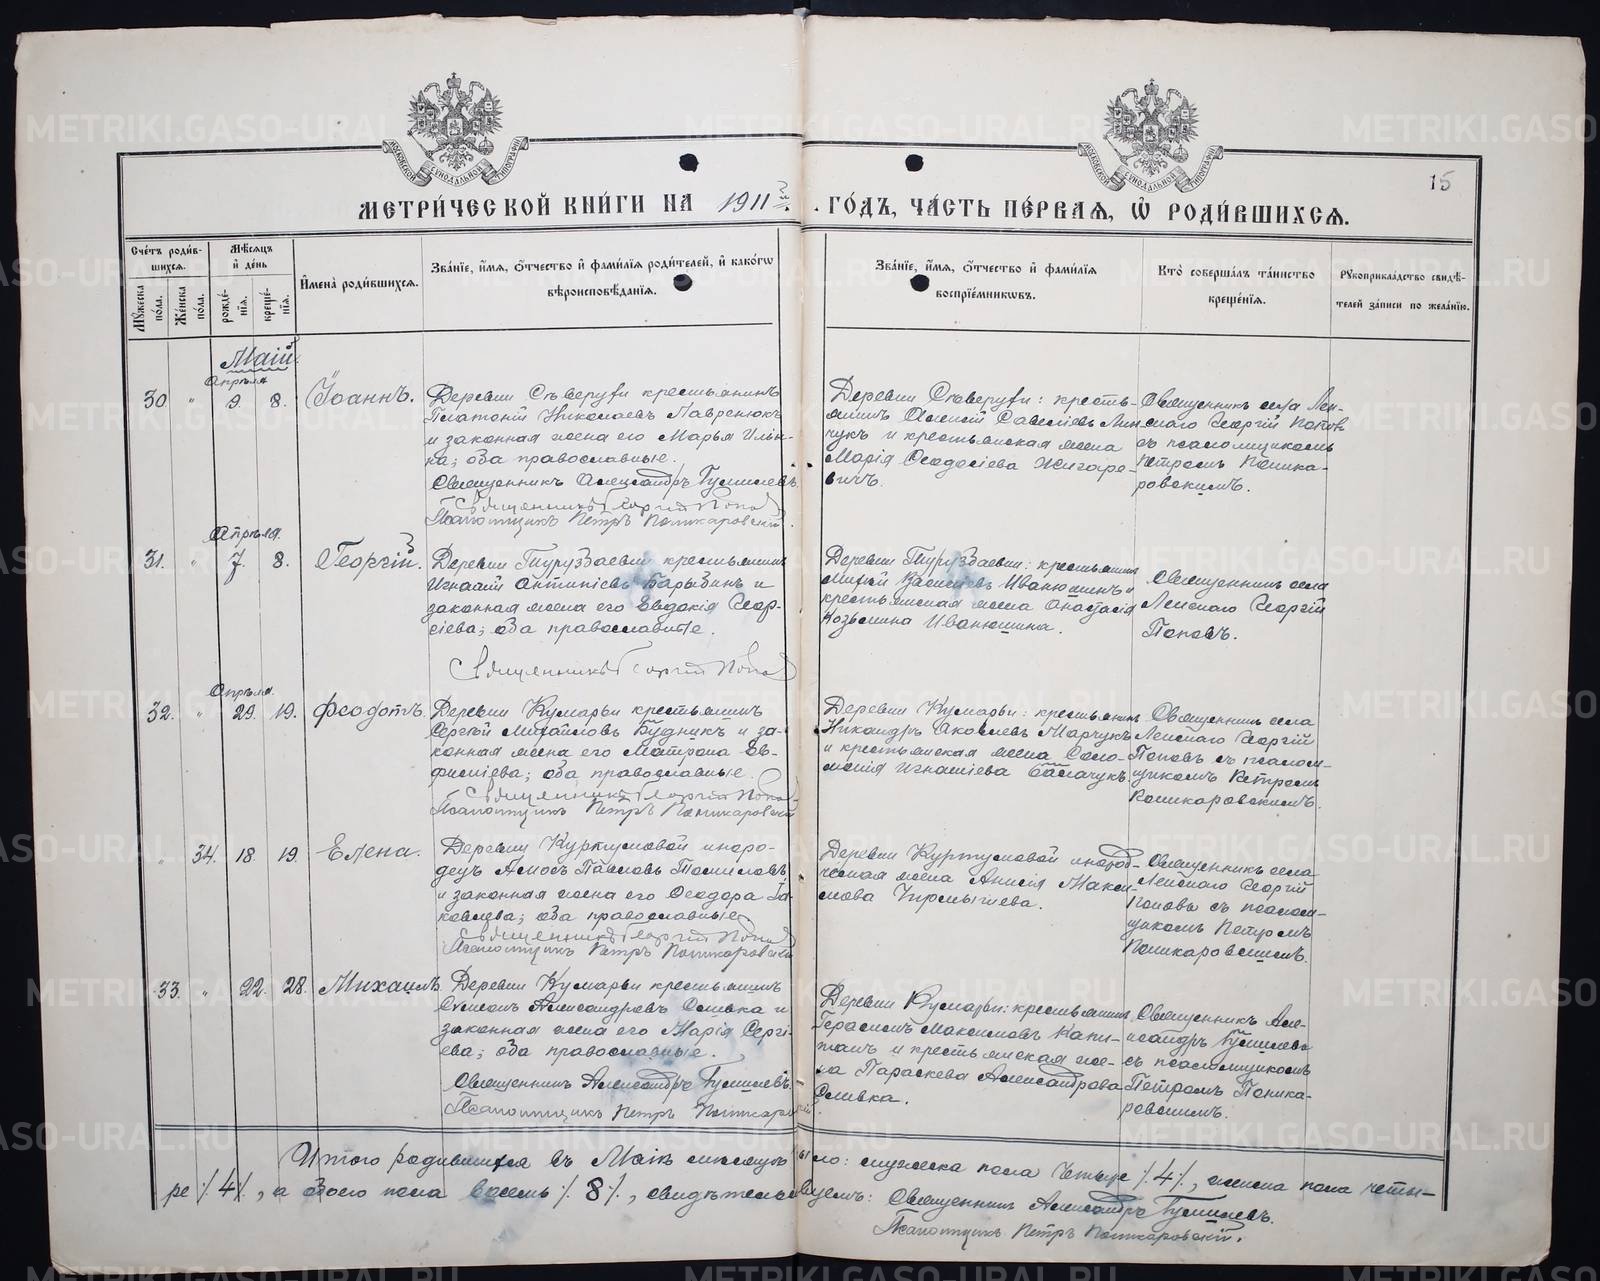 МОСКОВСКОЙ СУНОДАЛЬНОЙ ТИПОГРАФІИ
МОСКОВСКОЙ СУНОДАЛЬНОЙ ТИПОГРАФІИ
15
МЕТРИ́ЧЕСКОЙ КНИ́ГИ НА 1911й ГО́ДЪ, ЧА́СТЬ ПЕ́РВАѦ, Ѽ РОДИ́ВШИХСѦ.
Счётъ роди́в-
шихся.
Мѣсяцъ
и҆ де́нь
Мꙋ́жеска по́ла.
Же́нска по́ла.
рожде́-
нїя.
креще́-
нїя.
И҆мена̀ роди́вшихся.
Зва́нїе, и҆́мя, ѻ҆́тчество и҆ фами́лїя роди́телей, и҆ како́гѡ
вѣроисповѣ́данїя.
Зва́нїе, и҆́мя, ѻ҆́тчество и҆ фами́лїя
воспрїе́мникѡвъ.
Кто̀ соверша́лъ та́инство
креще́нїя.
Рꙋкоприкла́дство свидѣ́-
телей за́писи по жела́нїю.
Маій
Апрѣля
30. " 9. 8. Іоаннъ.
Деревни Сѣверухи крестьянинъ
Платоній Николаевъ Лавренюкъ
и законная жена его Марья Ильи-
на; оба православные.
Священникъ Александръ
Священникъ Георгій Поповъ
Псаломщикъ Петръ Поникаровскій.
Деревни Сѣверухи: кресть-
янинъ Алексій Савельевъ
чукъ и крестьянская жена
Марія Ѳеодосіева Жигаро-
вичъ.
Священникъ села Лен-
скаго Георгій Поповъ
съ псаломщикомъ
Петромъ Поника-
ровскимъ.
Апрѣля.
31. " 7. 8. Георгій.
Деревни крестьянинъ
Игнатій Антипіевъ Барыбинъ и
законная жена его Евдокія Геор-
гіева; оба православные.
Священникъ Георгій Поповъ
Деревни крестьянинъ
Василіевъ Иванюшинъ и
крестьянская жена Анастасія
Козьмина Иванюшина.
Священникъ села
Ленскаго Георгій
Поповъ.
Апрѣля.
32. " 29. 19. Ѳеодотъ.
Деревни Кумарьи крестьянинъ
Сергѣй Михайловъ Будникъ и за-
конная жена его Матрона Ев-
фиміева; оба православные.
Священникъ Георгій Поповъ
Псаломщикъ Петръ Поникаровскій
Деревни Кумарьи: крестьянинъ
Никандръ Яковлевъ Марчукъ
и крестьянская жена Соло-
монія Игнатіева
Священникъ села
Ленскаго Георгій
Поповъ съ псалом-
щикомъ Петромъ
Поникаровскимъ.
" 34. 18. 19. Елена.
Деревни Куртумовой инаро-
децъ Амосъ Павловъ Томиловъ
и законная жена его Ѳеодора Іа-
ковлева; оба православные.
Священникъ Георгій Поповъ
Псаломщикъ Петръ Поникаровскій
Деревни Куртумовой инарод-
ческая жена Анисія Макси-
мова
Священникъ села
Ленскаго Георгій
Поповъ съ псалом-
щикомъ Петромъ
Поникаровскимъ.
33. " 22. 28. Михаилъ
Деревни Кумарьи крестьянинъ
Симонъ Александровъ Сливка и
законная жена его Марія Сергі-
ева; оба православные.
Священникъ Александръ
Псаломщикъ Петръ Поникаровскій
Деревни Кумарьи: крестьянинъ
Герасимъ Максимовъ Капи-
танъ и крестьянская же-
на Параскева Александрова
Сливка.
Священникъ Але-
ксандръ
съ псаломщикомъ
Петромъ Поника-
ровскимъ.
Итого родившихся въ Маѣ мѣсяцѣ было: мужеска пола четыре ./.4./., женска пола четы-
ре ./.4./., а обоего пола восемь ./.8./., свидѣтельствуемъ: Священникъ Александръ
Псаломщикъ Петръ Поникаровскій.
METRIKI.GASO-URAL.RU